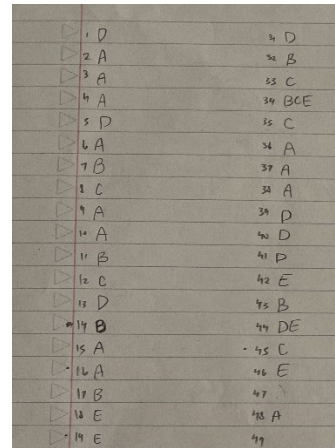 1 D
2 A
3 A
4 A
5 D
6 A
7 B
8 C
9 A
10 A
11 B
12 C
13 D
14 B
15 A
16 A
17 B
18 E
19 E
31 D
32 B
33 C
34 BCE
35 C
36 A
37 A
38 A
39 D
40 D
41 D
42 E
43 B
44 DE
45 C
46 E
47
48 A
49